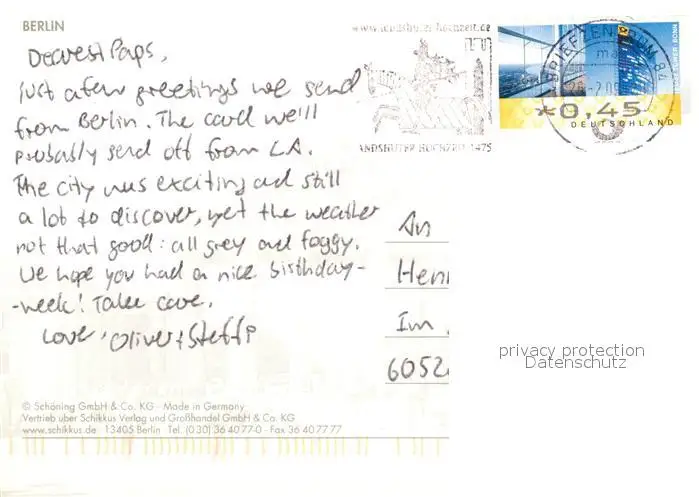 BERLIN
www.landshuter-hochzeit.de
BRIEFZENTRUM 84
Dearest Paps,
just a few greetings we send
from Berlin. The card we'll
probably send off from LA.
The city was exciting and still
a lot to discover, yet the weather
not that good: all grey and foggy.
We hope you had a nice birthday-
-week! Take care.
Love, Oliver + Steffi
LANDSHUTER HOCHZEIT 1475
*0,45
DEUTSCHLAND
TOWER BONN
An
Hen
Im
6052
privacy protection
Datenschutz
© Schöning GmbH & Co. KG - Made in Germany
Vertrieb über Schikkus Verlag und Großhandel GmbH & Co. KG
www.schikkus.de 13405 Berlin Tel. (030) 36 40 77-0 - Fax 36 40 77 77